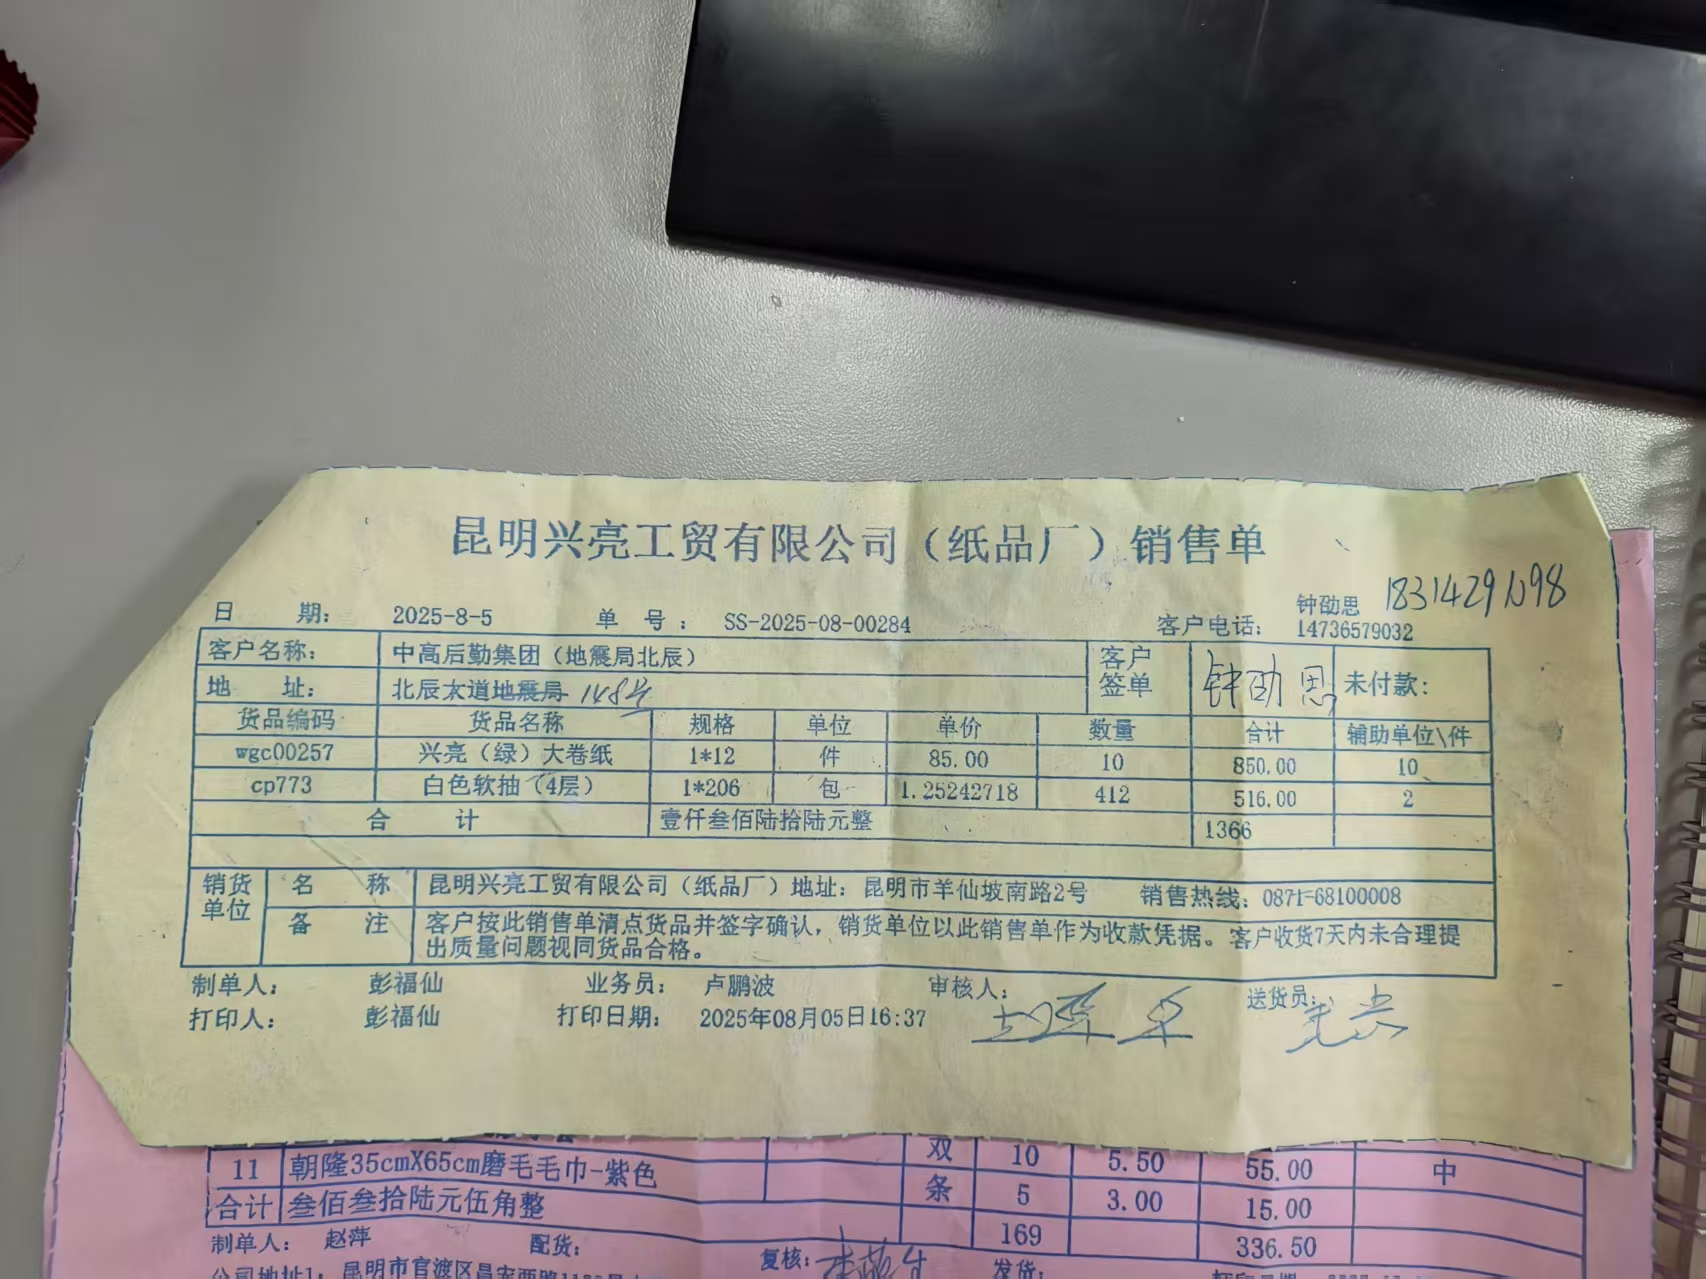 昆明兴亮工贸有限公司（纸品厂）销售单
日 期： 2025-8-5 单 号： SS-2025-08-00284 客户电话： 钟劭思 14736579032
客户名称： 中高后勤集团（地震局北辰） 客户签单 钟劭思 未付款：
地 址： 北辰大道地震局 148号
货品编码 货品名称 规格 单位 单价 数量 合计 辅助单位\件
wgc00257 兴亮（绿）大卷纸 1*12 件 85.00 10 850.00 10
cp773 白色软抽（4层） 1*206 包 1.25242718 412 516.00 2
合 计 壹仟叁佰陆拾陆元整 1366
销货单位 名 称 昆明兴亮工贸有限公司（纸品厂）地址：昆明市羊仙坡南路2号 销售热线：0871-68100008
备 注 客户按此销售单清点货品并签字确认，销货单位以此销售单作为收款凭据。客户收货7天内未合理提
出质量问题视同货品合格。
制单人： 彭福仙 业务员： 卢鹏波 审核人： 送货员：
打印人： 彭福仙 打印日期： 2025年08月05日16:37
双 10 5.50 55.00 中
11 朝隆35cmX65cm磨毛毛巾-紫色 条 5 3.00 15.00
合计 叁佰叁拾陆元伍角整 169 336.50
制单人： 赵萍 配货： 复核： 发货：
公司地址1：昆明市官渡区昌宏西路